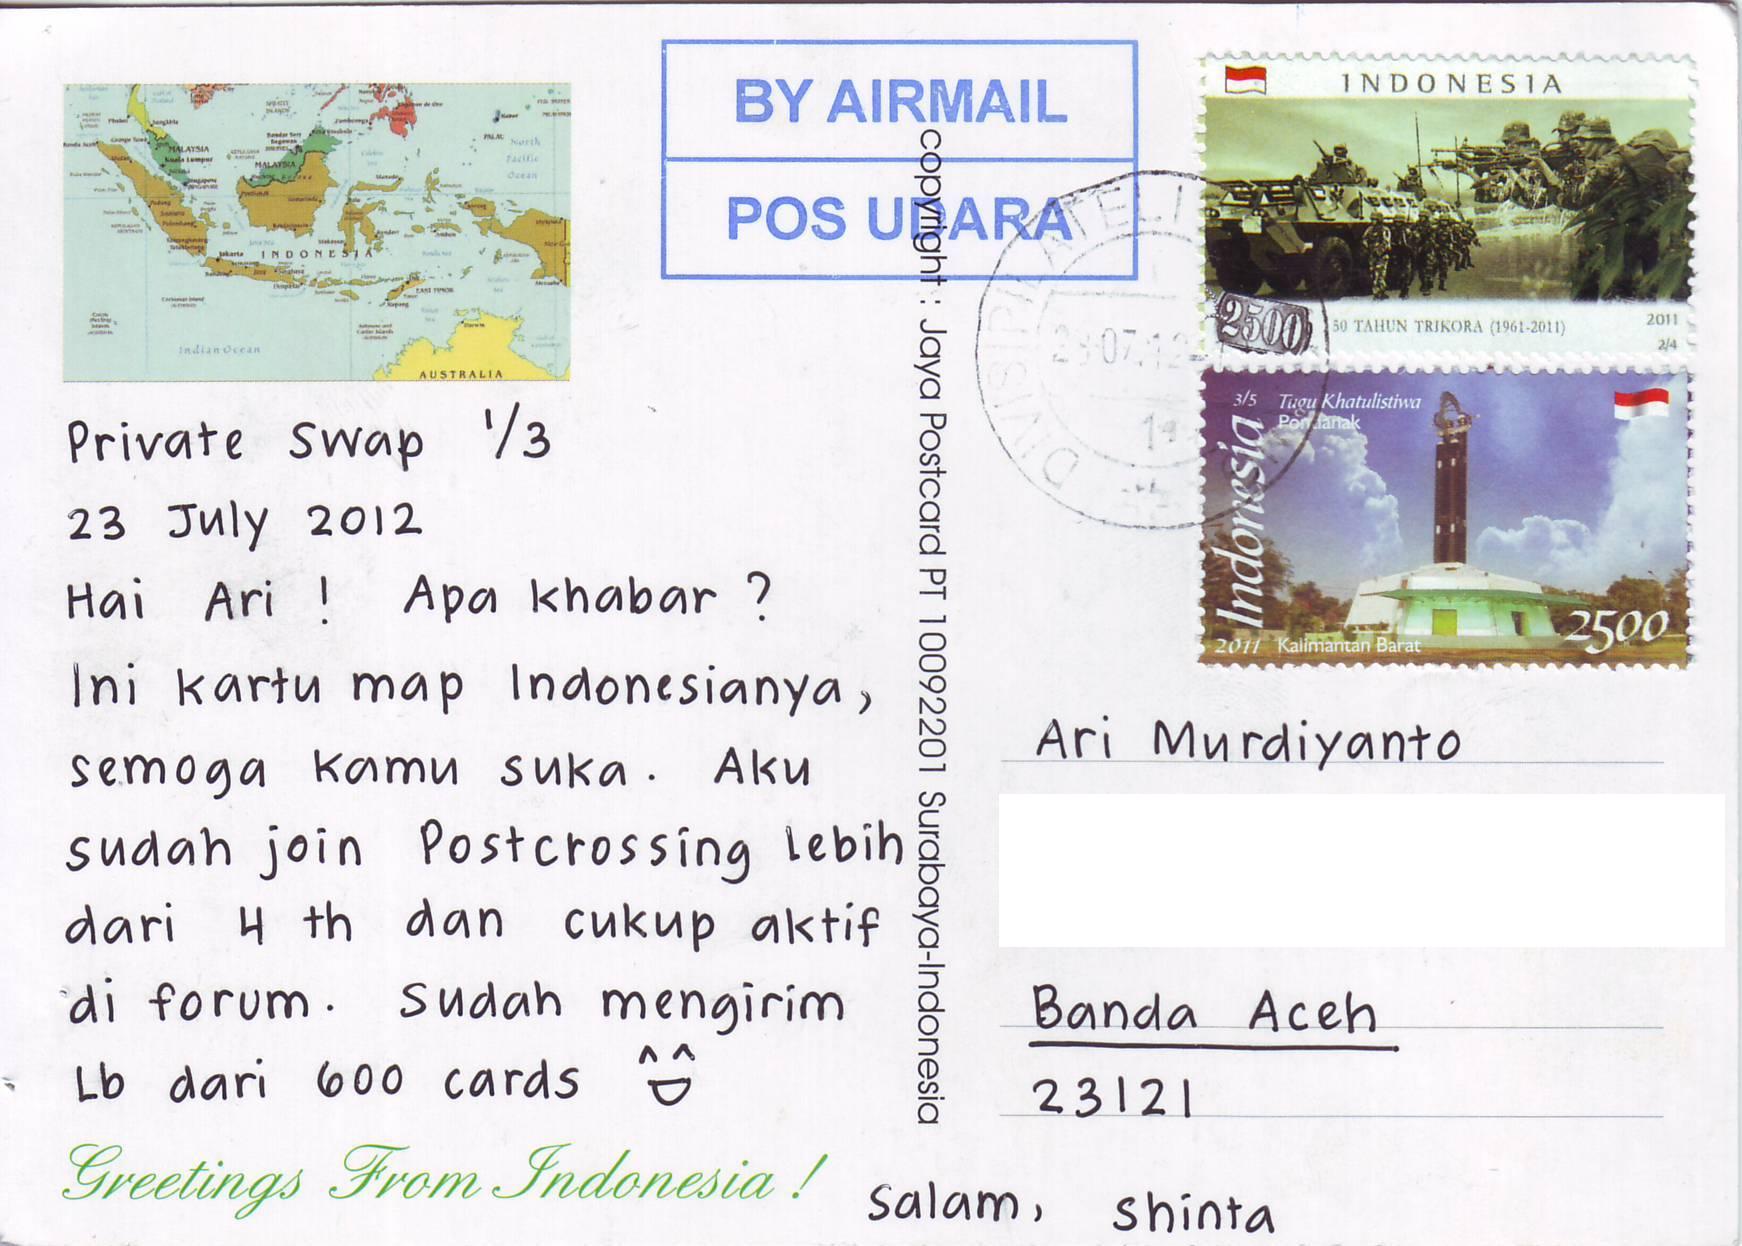 BY AIRMAIL
POS UDARA
INDONESIA
2500
50 TAHUN TRIKORA (1961-2011)
2011
2/4
3/5 Tugu Khatulistiwa
Pontianak
Indonesia
2011 Kalimantan Barat
2500
MALAYSIA
Kuala Lumpur
MALAYSIA
North
Pacific
Ocean
PALAU
Jakarta
INDONESIA
EAST TIMOR
Darwin
Indian Ocean
AUSTRALIA
Private swap 1/3
23 July 2012
Hai Ari ! Apa khabar ?
Ini kartu map Indonesianya,
semoga kamu suka. Aku
sudah join Postcrossing lebih
dari 4 th dan cukup aktif
di forum. Sudah mengirim
Lb dari 600 cards
Greetings From Indonesia !
copyright : Jaya Postcard PT 10092201 Surabaya-Indonesia
Ari Murdiyanto
Banda Aceh
23121
salam, shinta